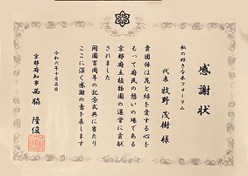 感謝状
私の好きな木フォーラム
代表 牧野 茂樹 様
貴団体は花と緑を愛する心を
もって府民の憩いの場である
京都府立植物園の運営に貢献
されました
開園百周年の記念式典に当たり
ここに深く感謝の意を表します
令和六年十月五日
京都府知事 西脇 隆俊